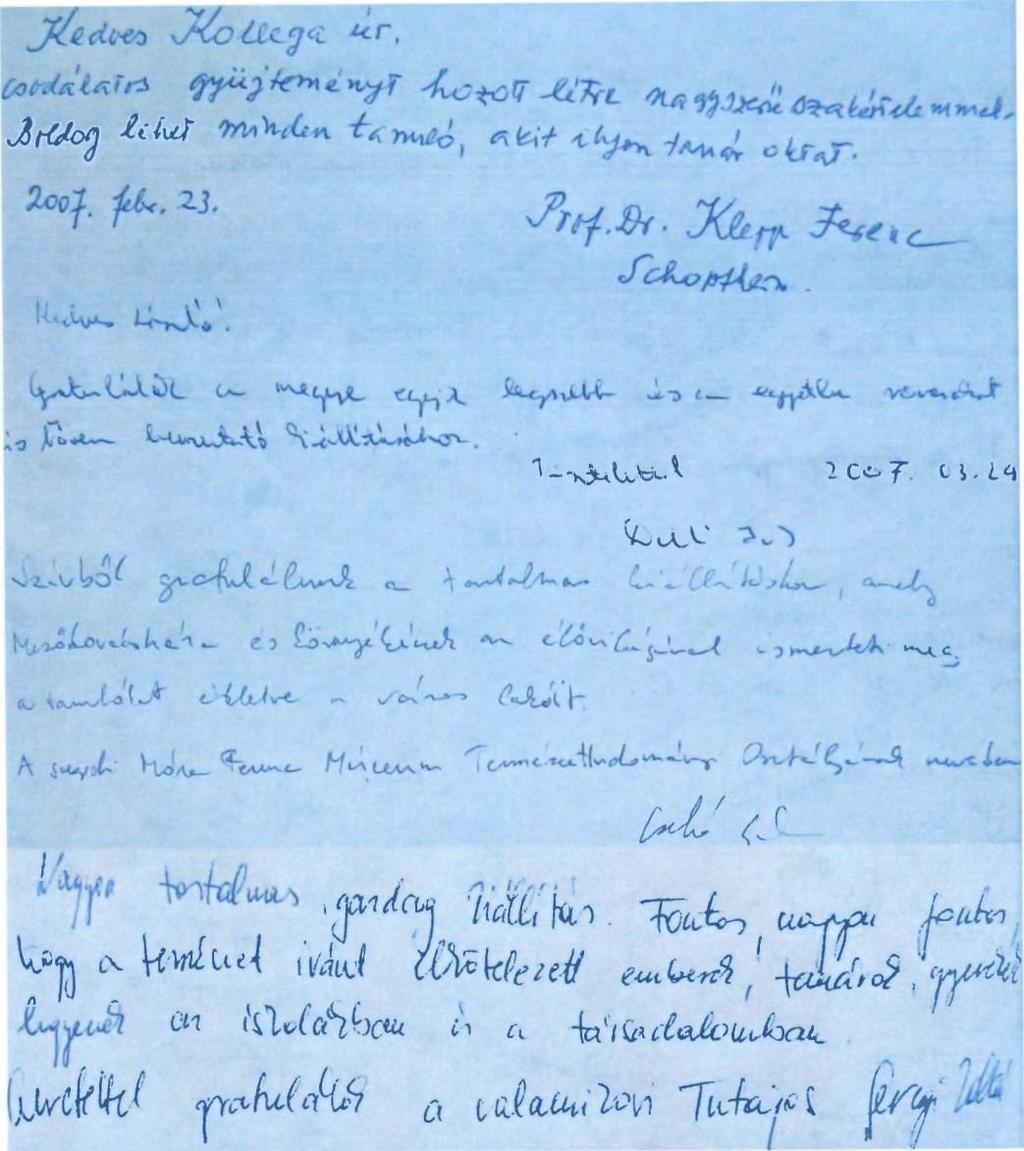 Kedves Kollega úr,
csodálatos gyűjteményt hozott létre nagyszerű szakértelemmel.
Boldog lehet minden tanuló, akit ilyen tanár oktat.
2007. febr. 23.
Prof. Dr. Klepp Ferenc
Schopfhen
Kedves László!
Gratulálok a megye egyik legszebb és az egyetlen
is bőven bemutató kiállításához.
Tisztelettel 2007. 03. 29
Szívből gratulálunk a tartalmas kiállításhoz, amely
Mezőkovácsháza és környékének az élővilágával ismerteti meg
a tanulókat illetve a város lakóit.
A szegedi Móra Ferenc Múzeum Természettudományi Osztályának nevében
Csakó
Nagyon tartalmas, gazdag kiállítás. Fontos, nagyon fontos,
hogy a természet iránt elkötelezett emberek, tanárok, gyerekek
legyenek az iskolákban és a társadalomban
Szeretettel gratulálok a valamikori Tutajos Gergi Zoltá